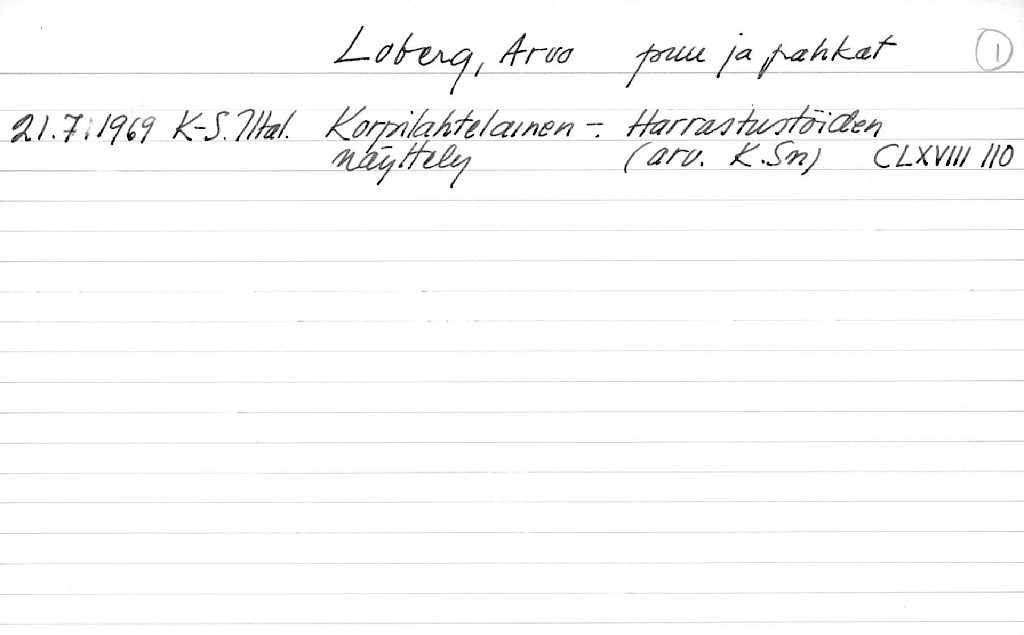 Loberg, Arvo puu ja pahkat 1
21.7.1969 K-S. Iltal. Korpilahtelainen -. Harrastustöiden
näyttely (arv. K.Sn) CLXVIII 110